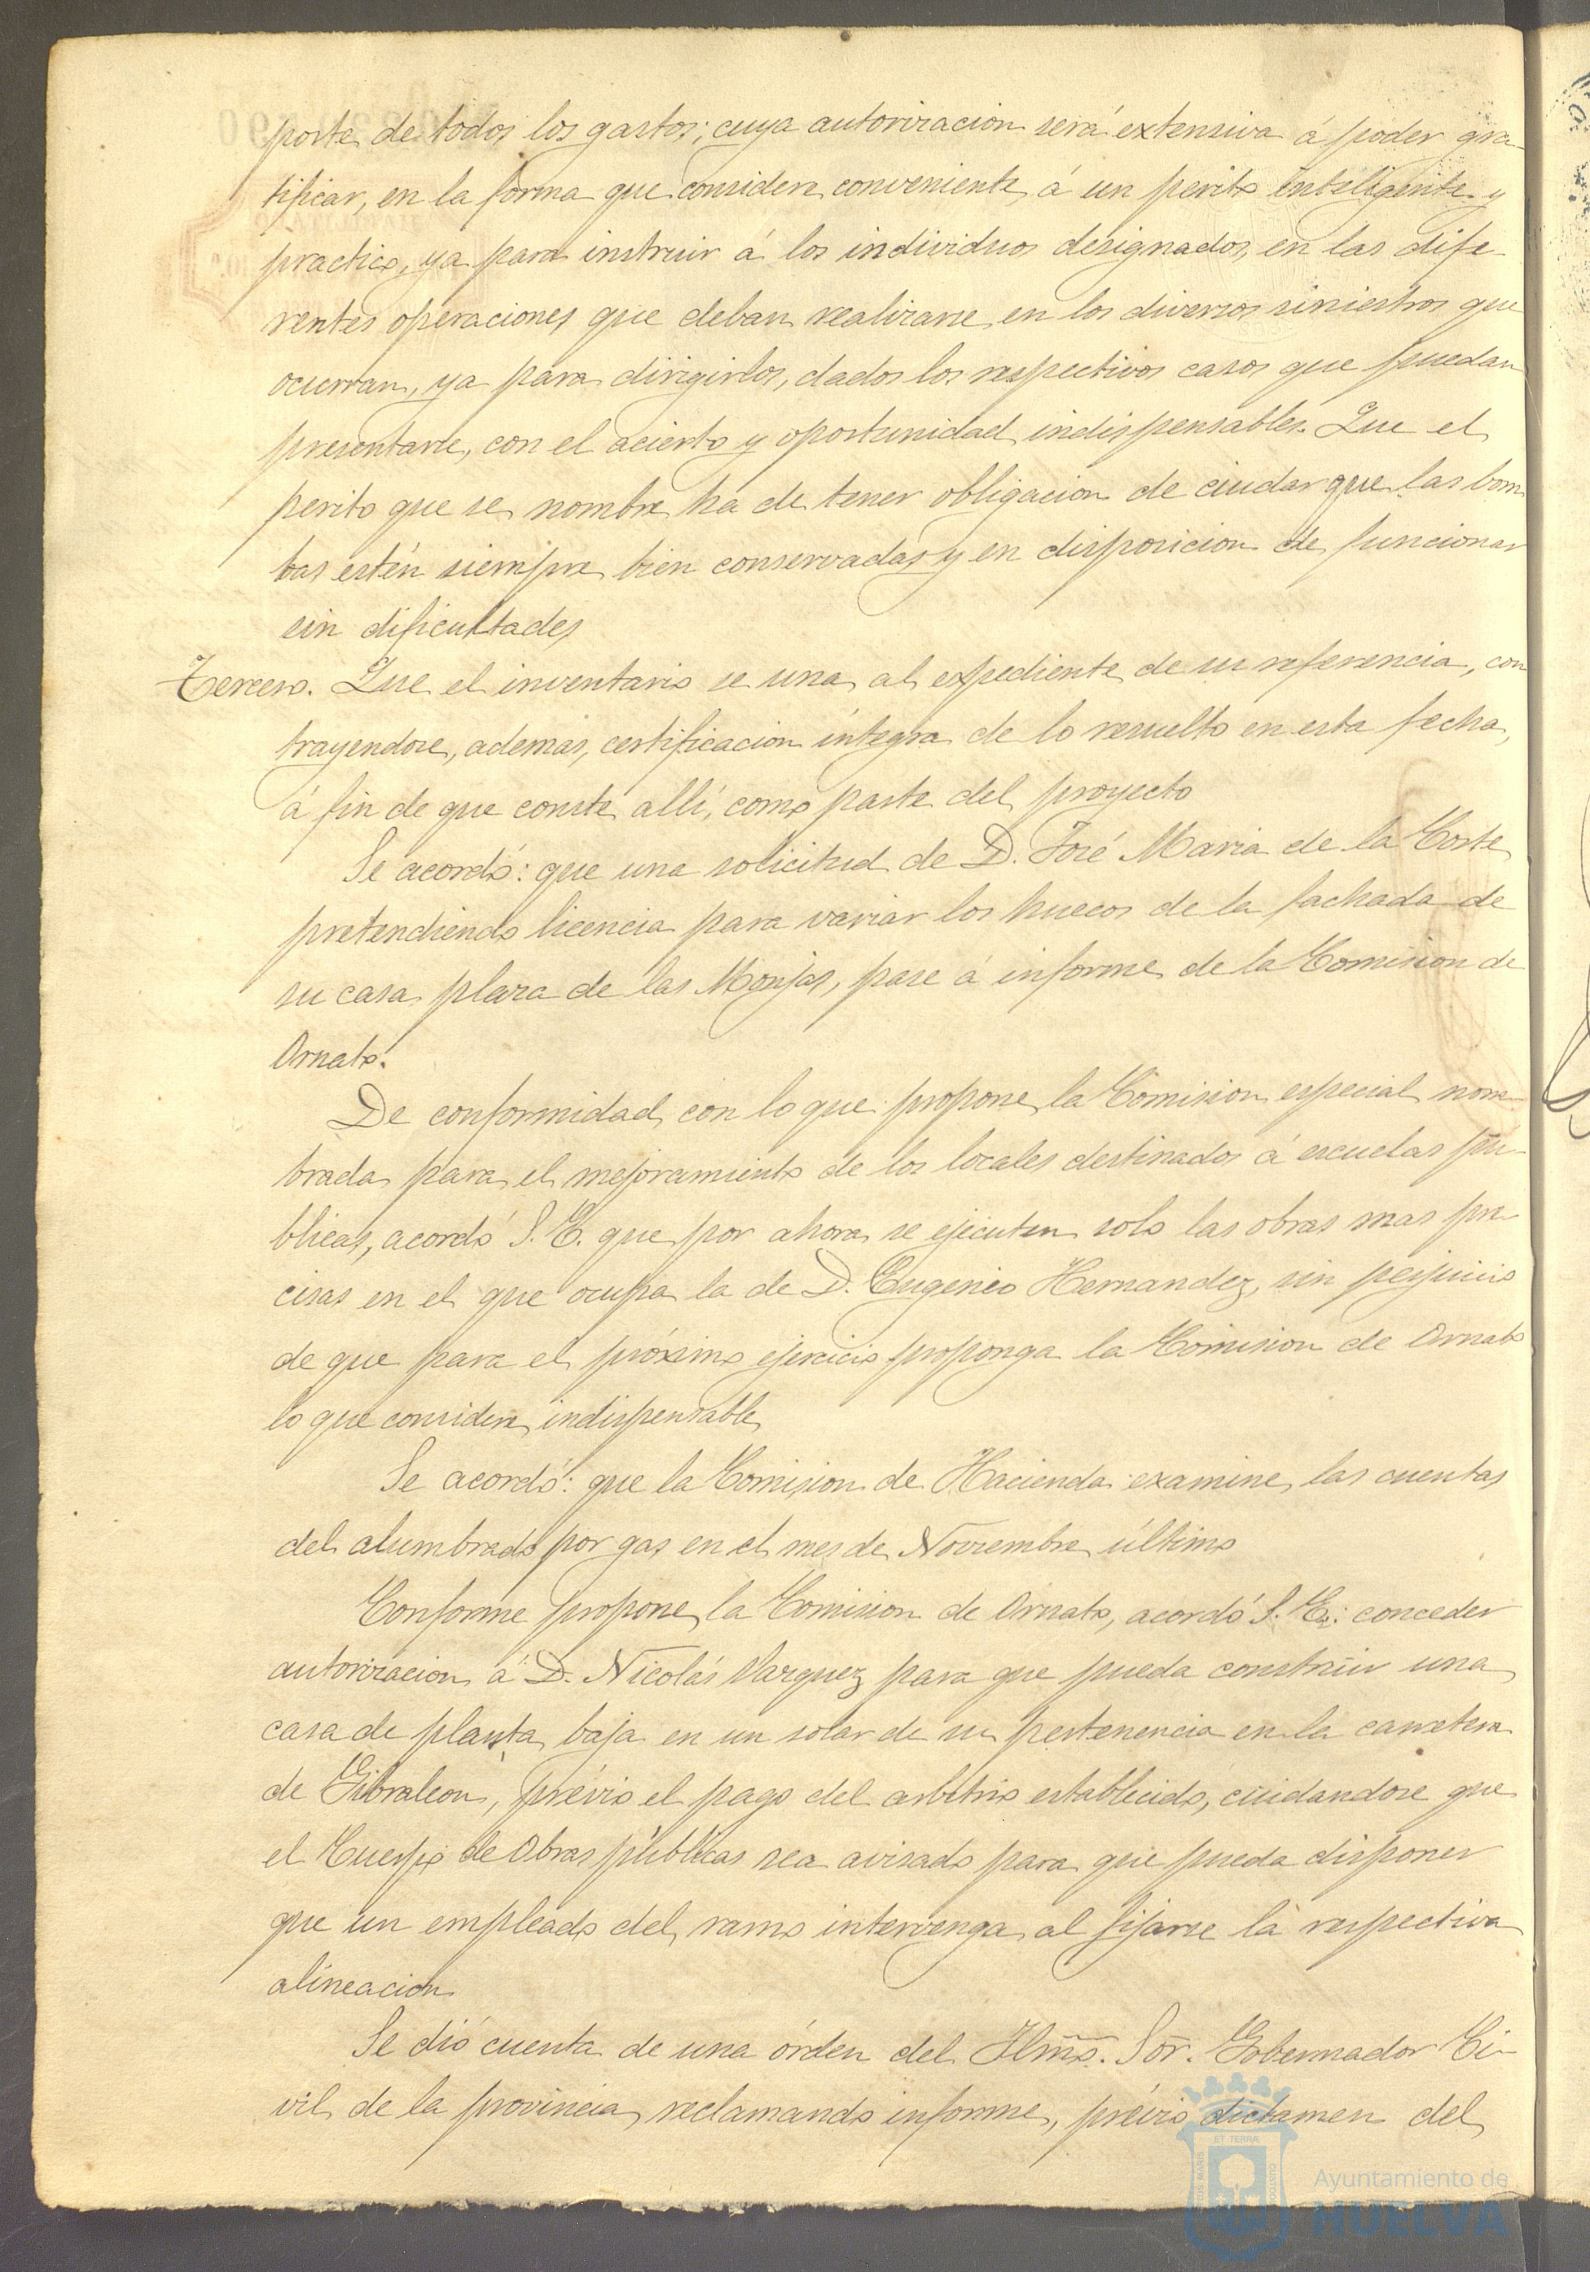 porte de todos los gastos; cuya autorizacion será extensiva á poder gra-
tificar, en la forma que considere conveniente, á un perito inteligente y
practico, ya para instruir á los individuos designados, en las dife-
rentes operaciones que deban realizarse en los diversos siniestros que
ocurran, ya para dirigirlos, dados los respectivos casos que puedan
presentarse, con el acierto y oportunidad indispensables. Que el
perito que se nombre ha de tener obligacion de ciudar que las bom
bas estén siempre bien conservadas y en disposicion de funcionar
sin dificultades
Tercero. Que el inventario se una al expediente de su referencia, con
trayendose, ademas, certificacion integra de lo resuelto en esta fecha,
á fin de que conste allí, como parte del proyecto
Se acordó: que una solicitud de D. José Maria de la Corte
pretendiendo licencia para variar los huecos de la fachada de
su casa plaza de las Monjas, pase á informe de la Comision de
Ornato.
De conformidad con lo que propone la Comision especial nom-
brada para el mejoramiento de los locales destinados á escuelas pú-
blicas, acordó S. E. que por ahora se ejecuten solo las obras mas pre-
cisas en el que ocupa la de D. Eugenio Hernandez, sin perjuicio
de que para el próximo ejercicio proponga la Comision de Ornato
lo que considere indispensable
Se acordó: que la Comision de Hacienda examine las cuentas
del alumbrado por gas en el mes de Noviembre último
Conforme propone la Comision de Ornato, acordó S. E.: conceder
autorizacion á D. Nicolás Vazquez para que pueda construir una
casa de planta baja en un solar de su pertenencia en la carretera
de Gibraleon, prévio el pago del arbitrio establecido, cuidandose que
el Cuerpo de Obras públicas sea avisado para que pueda disponer
que un empleado del ramo intervenga al fijarse la respectiva
alineacion
Se dió cuenta de una órden del Ilmo. Sor. Gobernador Ci-
vil de la provincia, reclamando informe, prévio dictamen del
Ayuntamiento de
HUELVA